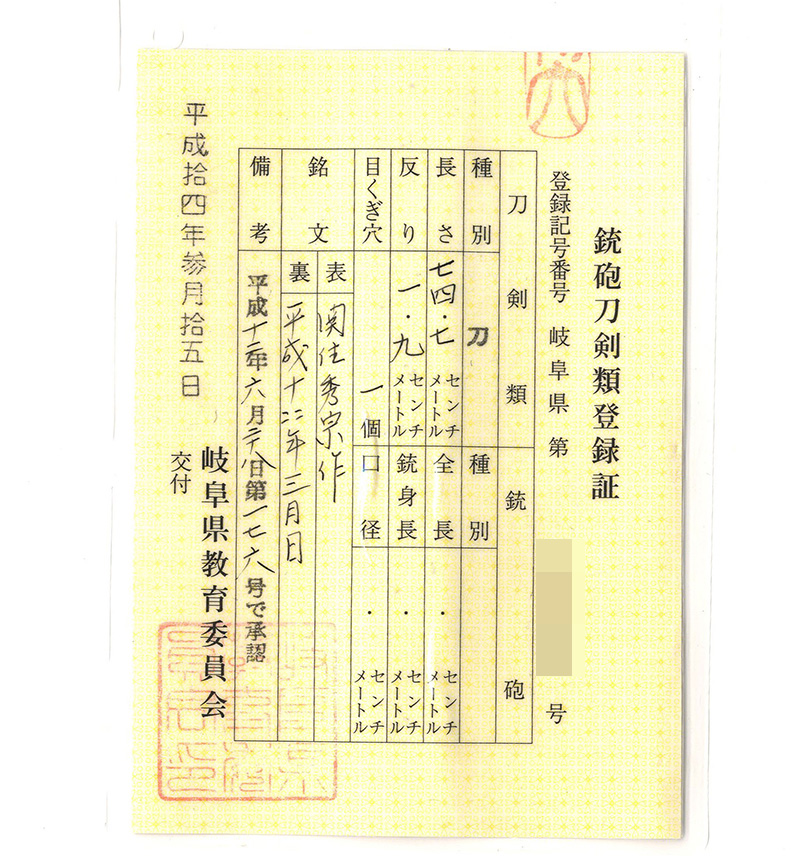 銃砲刀剣類登録証
登録記号番号 岐阜県 第 号
刀剣類 銃砲
種別 刀 種別
長さ 七四・七 センチメートル 全長 ・ センチメートル
反り 一・九 センチメートル 銃身長 ・ センチメートル
目くぎ穴 一個 口径 ・ センチメートル
銘文 表 関住秀宗作
裏 平成十二年三月日
備考 平成十二年六月二八日第一七六号で承認
岐阜県教育委員会
交付
平成拾四年参月拾五日